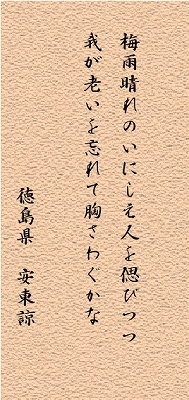 梅雨晴れのいにしえ人を偲びつつ
我が老いを忘れて胸さわぐかな
徳島県　安東諒